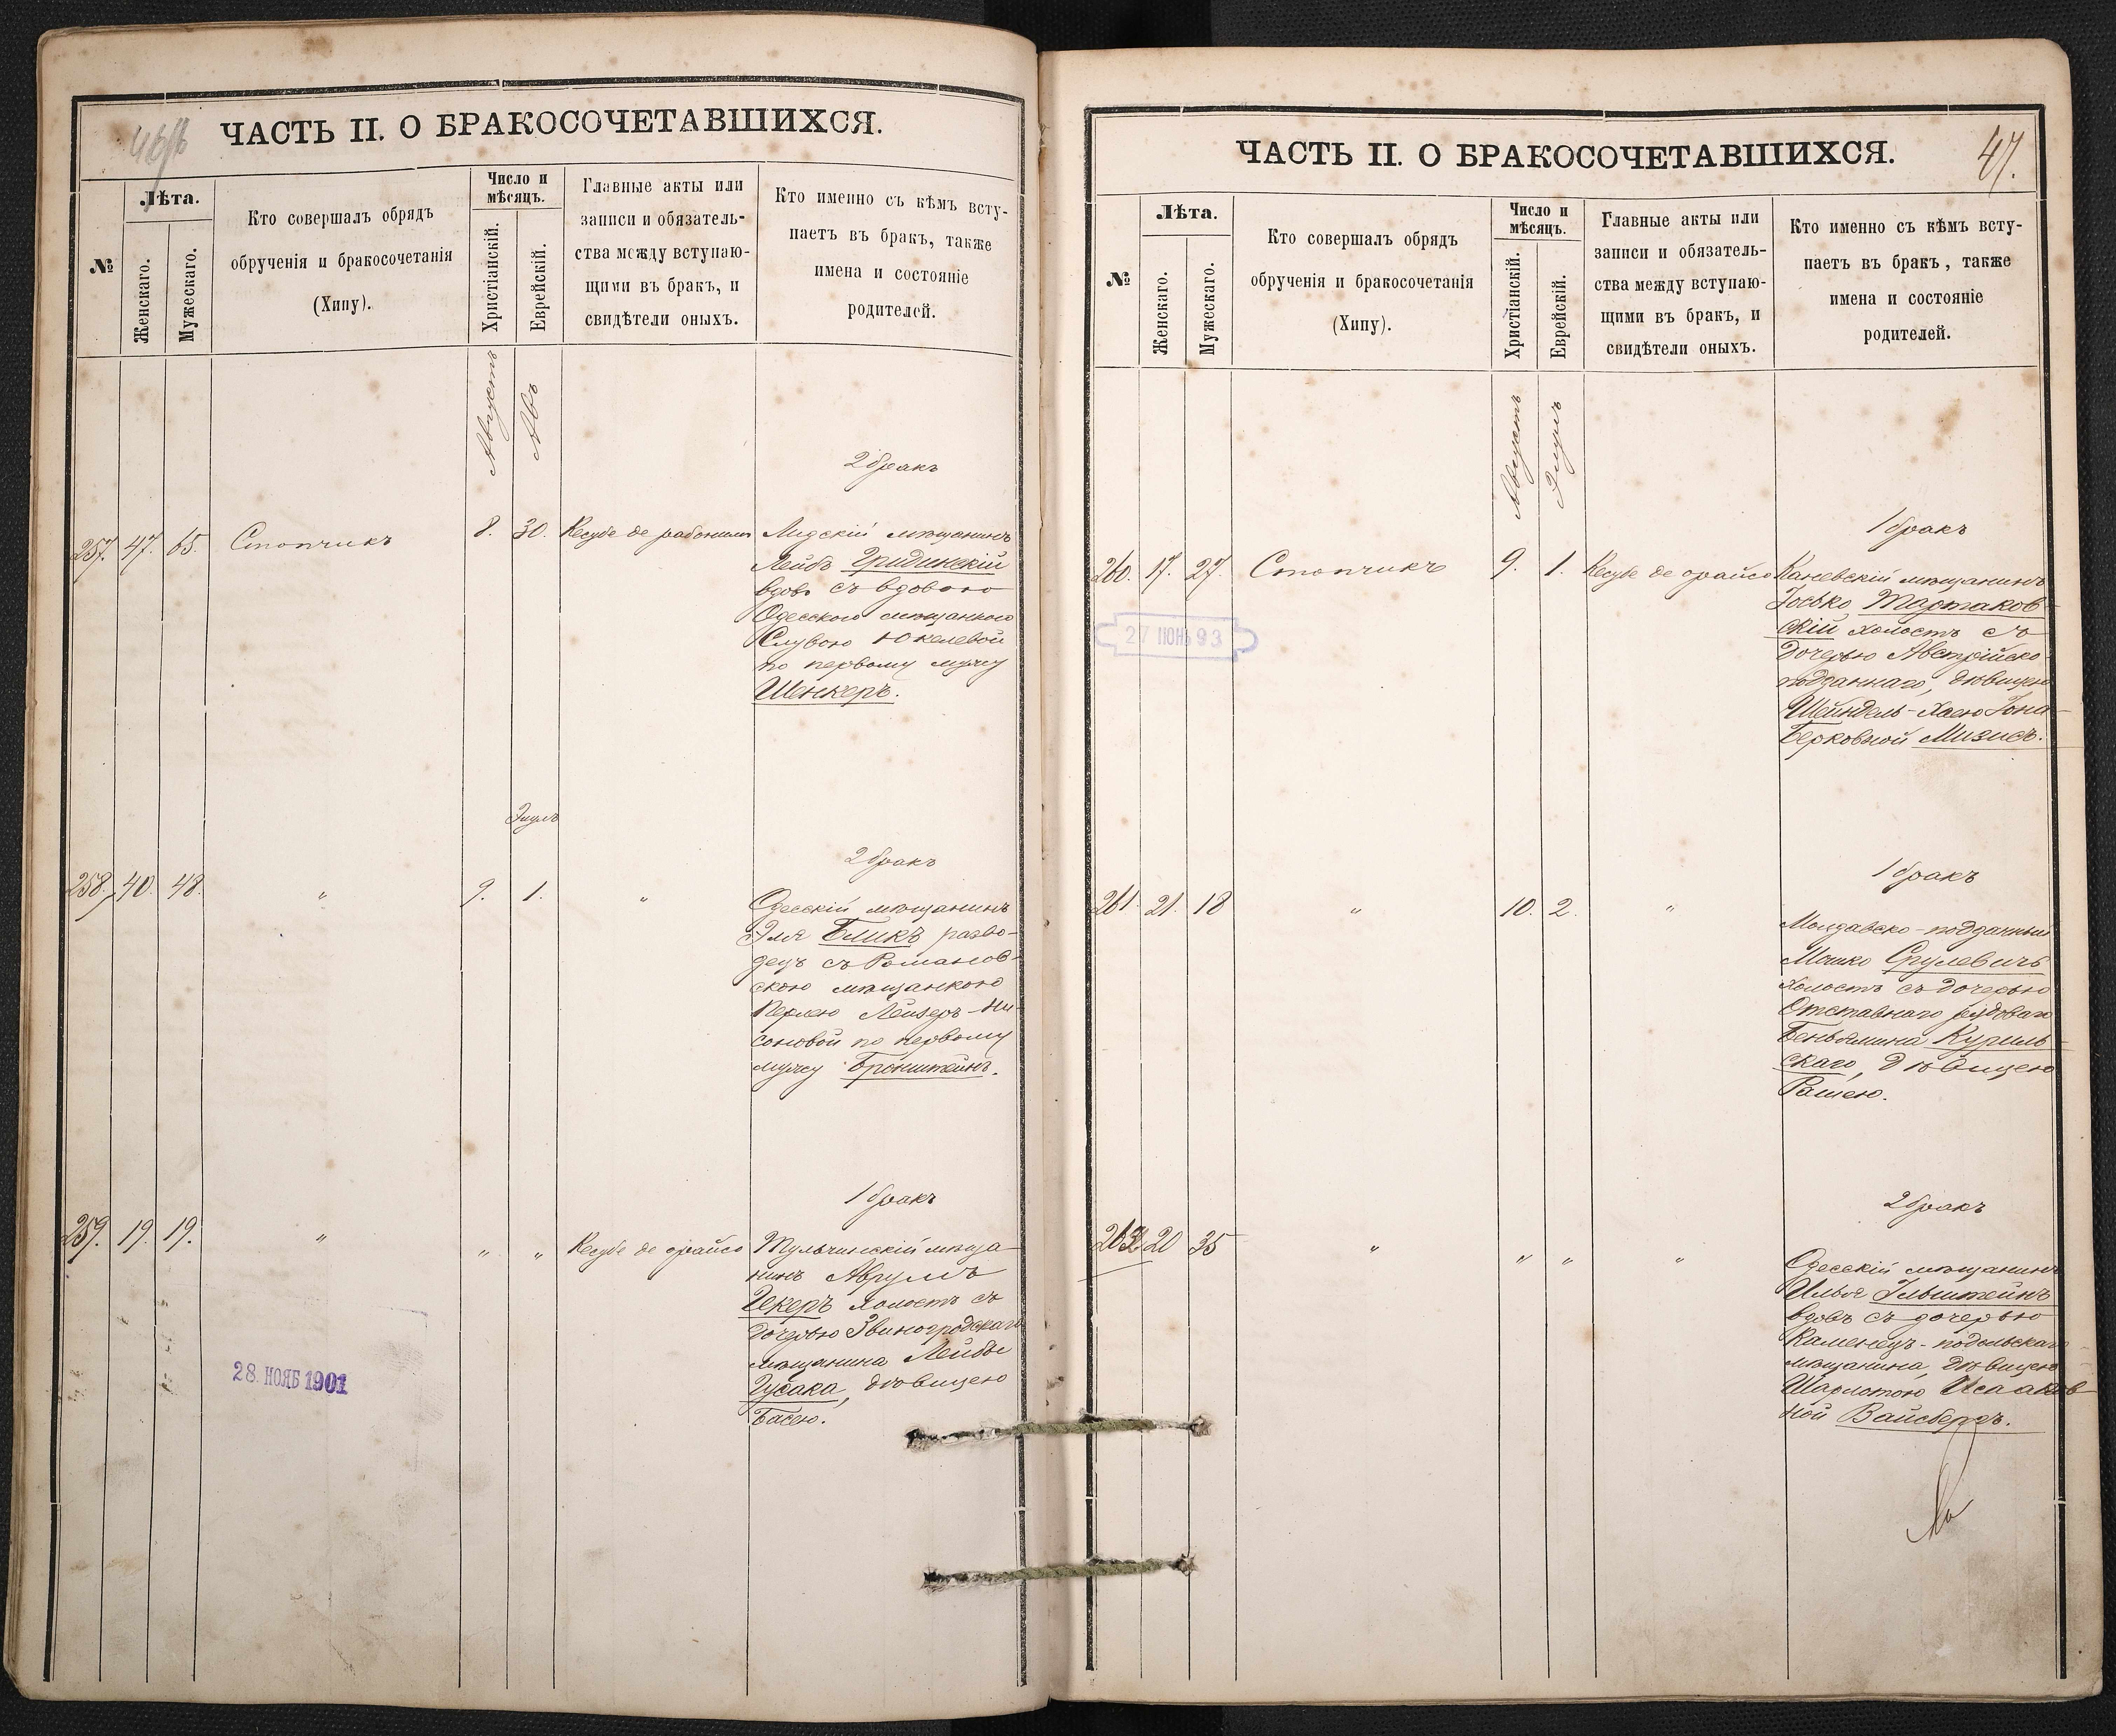 ЧАСТЬ II. О БРАКОСОЧЕТАВШИХСЯ.
№
Лѣта.
Женскаго.
Мужескаго.
Кто совершалъ обрядъ
обрученія и бракосочетанія
(Хипу).
Число и
мѣсяцъ.
Христіанскій.
Еврейскій.
Главные акты или
записи и обязатель-
ства между вступаю-
щими въ бракъ, и
свидѣтели оныхъ.
Кто именно съ кѣмъ всту-
паетъ въ бракъ, также
имена и состояніе
родителей.
Августъ
Авъ
2 бракъ
257. 47. 65. Стопчикъ 8. 30. Кесубе де рабонимъ
Лидскій мѣщанинъ
Лейбъ Гридинскій
вдовъ съ вдовою
Одесскою мѣщанкою
Слувою Юкелевой
по первому мужу
Шенкеръ.
Элулъ
2 бракъ
258. 40. 48. " 9. 1. "
Одесскій мѣщанинъ
Эля Бликъ разво-
децъ съ Романов-
скою мѣщанкою
Перлею Лейзеръ-Ни-
соновой по первому
мужу Бронштейнъ.
1 бракъ
259. 19. 19. " " " Кесубе де орайсо
Тульчинскій мѣща-
нинъ Аврумъ
Цкеръ холостъ съ
дочерью Звиногродскаго
мѣщанина Лейбы
Гусака, дѣвицею
Басею.
28. НОЯБ 1901
ЧАСТЬ II. О БРАКОСОЧЕТАВШИХСЯ.
47.
№
Лѣта.
Женскаго.
Мужескаго.
Кто совершалъ обрядъ
обрученія и бракосочетанія
(Хипу).
Число и
мѣсяцъ.
Христіанскій.
Еврейскій.
Главные акты или
записи и обязатель-
ства между вступаю-
щими въ бракъ, и
свидѣтели оныхъ.
Кто именно съ кѣмъ всту-
паетъ въ бракъ, также
имена и состояніе
родителей.
Августъ
Элулъ
1 бракъ
260. 17. 27. Стопчикъ 9. 1. Кесубе де орайсо
Каневскій мѣщанинъ
Іосько Мартаков-
скій холостъ съ
дочерью Австрійско-
подданнаго, дѣвицею
Шейндель-Хаею Іона-
Берковной Мизисъ.
27 ИЮНЬ 93
1 бракъ
261. 21. 18 " 10. 2. "
Молдавско-подданный
Мошко Срулевичъ
холостъ съ дочерью
Отставнаго рядоваго
Беньямина Куриль-
скаго, дѣвицею
Рашею.
2 бракъ
262 20 35 " " " "
Одесскій мѣщанинъ
Илья Эльштейнъ
вдовъ съ дочерью
Каменецъ-подольскаго
мѣщанина, дѣвицею
Шарлотою Исааков-
ной Вайсбергъ.